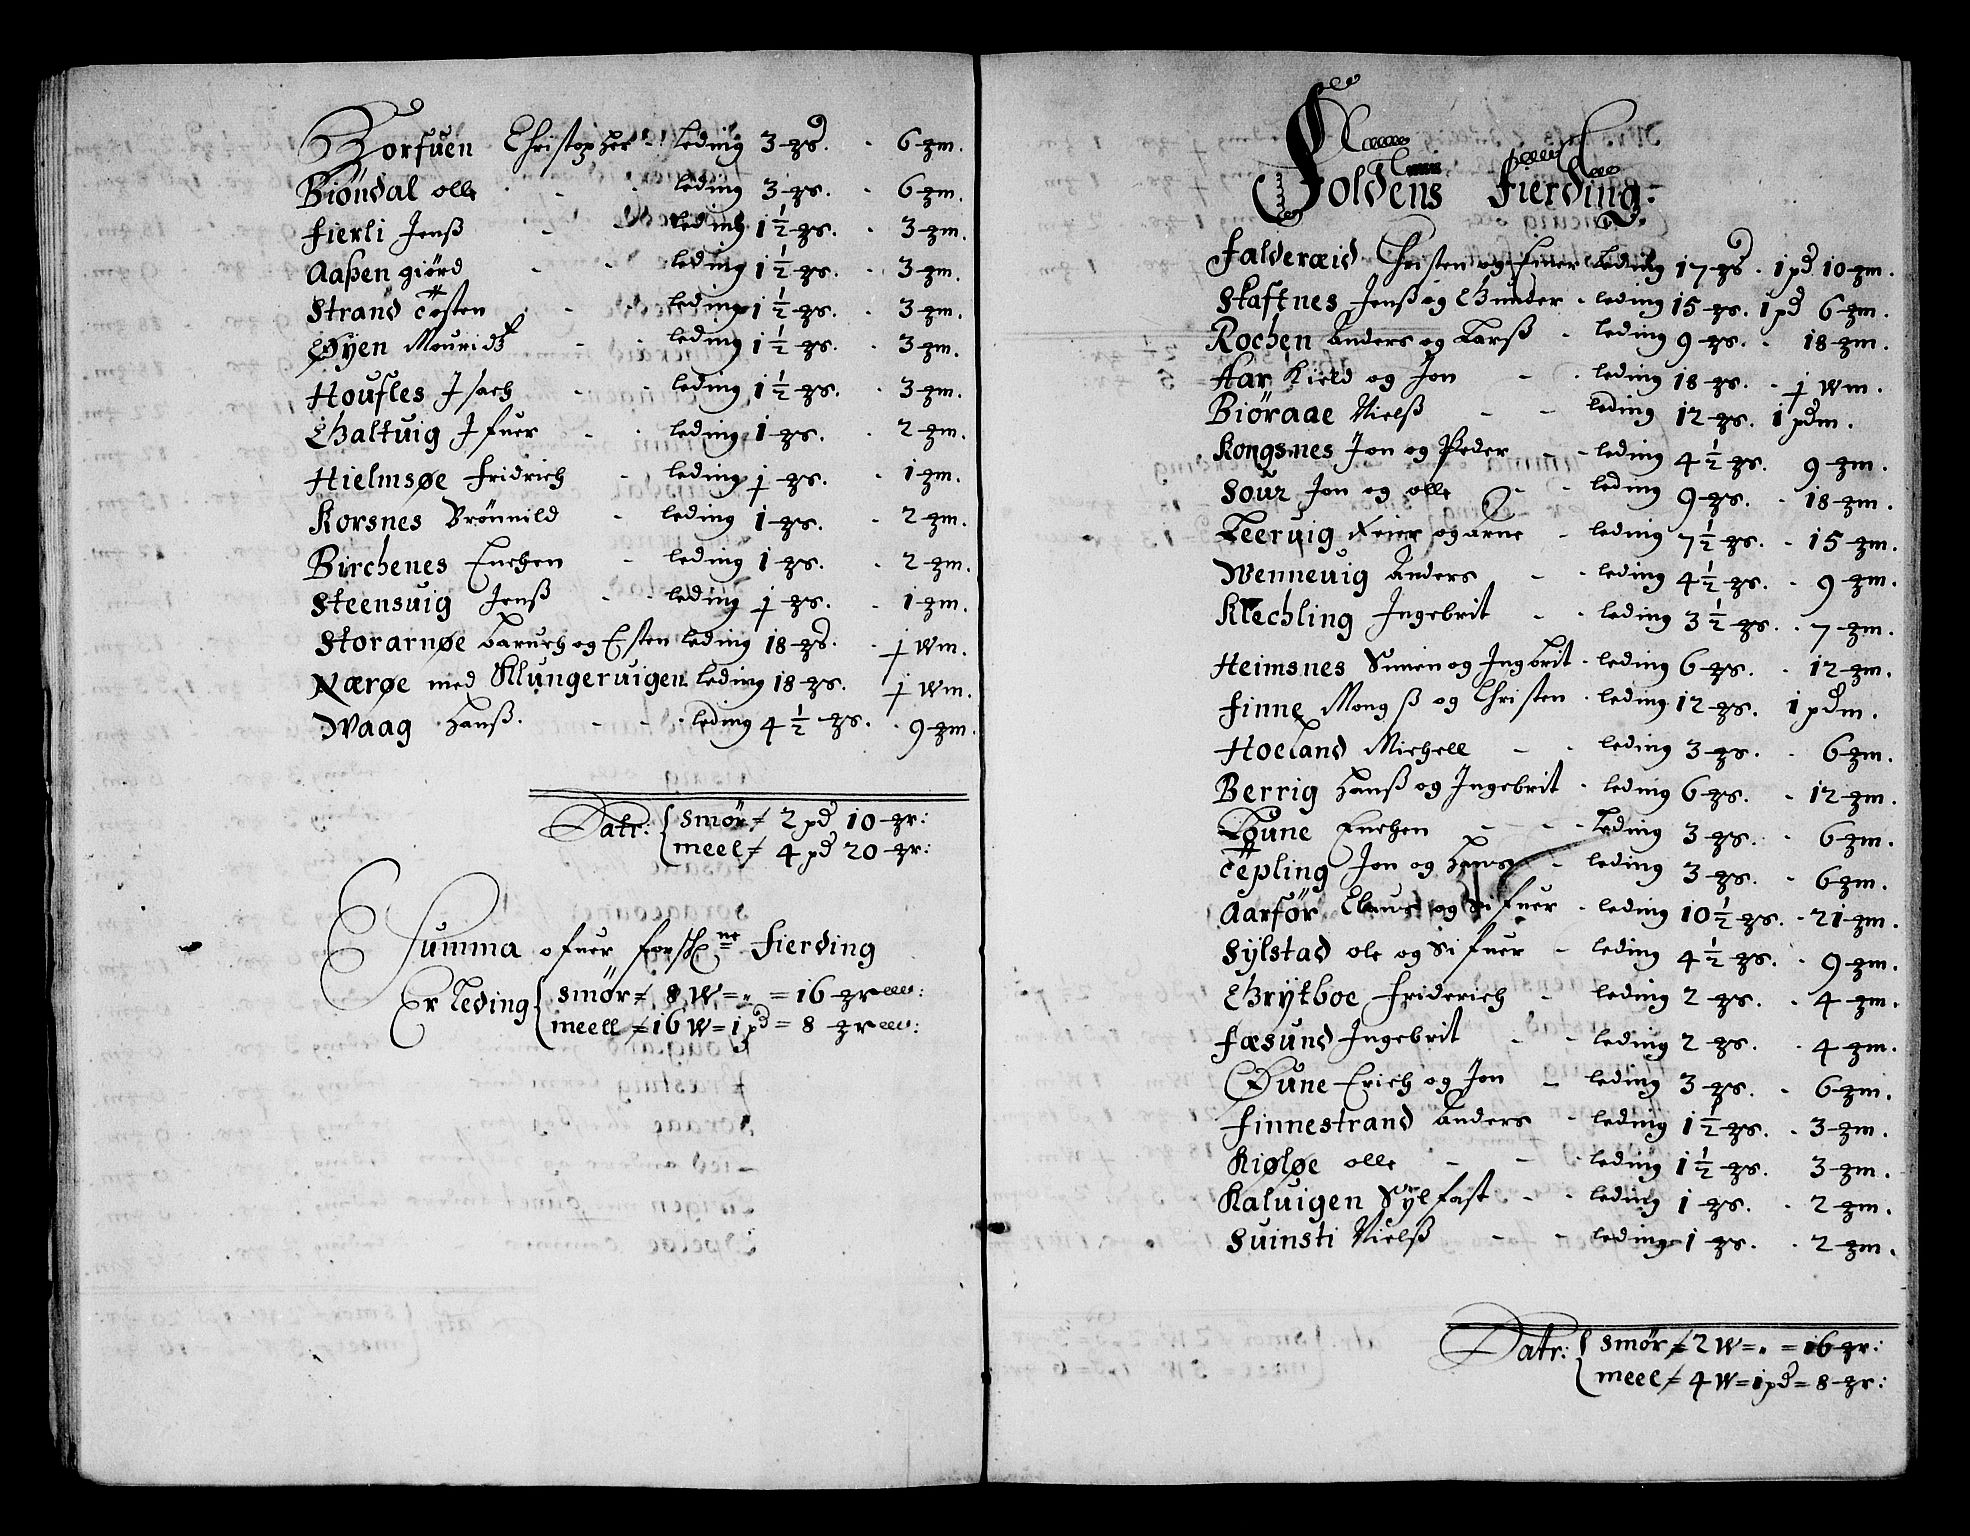 Horfuen Christopher - leding 3 zs. - 6 zm.
Biöndal olle - - - leding 3 zs. - 6 zm.
Fierli Jenß - leding 1½ zs. - 3 zm.
Aaßen giörd - - leding 1½ zs. - 3 zm.
Strand Tosten - - leding 1½ zs. - 3 zm.
Øyen Mouridß - - leding 1½ zs. - 3 zm.
Houfles Isach - - leding 1½ zs. - 3 zm.
Ghaltuig Ifuer - - leding 1 zs. - 2 zm.
Hielmsøe Fridrich - leding j zs. - 1 zm.
Korsnes Brönnild - leding 1 zs. - 2 zm.
Birchenes Enchen - leding 1 zs. - 2 zm.
Steensuig Jenß - - leding j zs. - 1 zm.
Storarnøe Baruch og Esten leding 18 zs. - j Wm.
Nærøe med Kllungeruigen leding 18 zs. j Wm.
Waag Hanß. - - - leding 4½ zs. - 9 zm.
Latr: smör = 2 pd 10 zr:
meel = 4 pd 20 zr:
Summa ofuer forsch ne Fierding
Er Leding smör = 8 W = „ = 16 zr:
meell = 16 W = 1 pd = 8 zr:
Foldens Fierding:
Falderæid Christen og Ener leding 17 zs - 1 pd 10 zm.
Skaftnes Jenß og Gunder - leding 15 zs. 1 pd 6 zm.
Rochen Anders og Larß - leding 9 zs. - 18 zm.
Aar Kield og Jon - - leding 18 zs. - j Wm.
Biöraae Nielß - - leding 12 zs. 1 pdm.
Kongsnes Jon og Peder - leding 4½ zs. 9 zm.
Sour Jon og olle - - leding 9 zs. - 18 zm.
Leeruig Reier og Arne - leding 7½ zs. - 15 zm.
Wenneuig Anders - - leding 4½ zs. - 9 zm.
Klechling Ingebrit - - leding 3½ zs. - 7 zm.
Heimsnes Simen og Ingbrit - leding 6 zs. - 12 zm.
Finne Mongß og Christen - leding 12 zs. 1 pdm.
Hoeland Michell - - leding 3 zs. - 6 zm.
Berrig Hanß og Ingebrit - leding 6 zs. - 12 zm.
Loune Enchen - - - leding 3 zs. - 6 zm.
Tepling Jon og Hans - leding 3 zs. - 6 zm.
Aarför Claus og Sifuer - leding 10½ zs. - 21 zm.
Sylstad ole og Sifuer - leding 4½ zs. - 9 zm.
Grytboe Friderich - leding 2 zs. - 4 zm.
Fæsund Ingebrit - - leding 2 zs. - 4 zm.
Dune Erich og Jon - leding 3 zs. - 6 zm.
Finnestrand Anders - leding 1½ zs. - 3 zm.
Kiøløe olle - - - leding 1½ zs. 3 zm.
Kaluigen Sylfast - - leding 1 zs. - 2 zm.
Suinsti Nielß - - leding 1 zs. - 2 zm.
Latr: smör = 2 W = „ = 16 zr:
meel = 4 W = 1 pd = 8 zr: